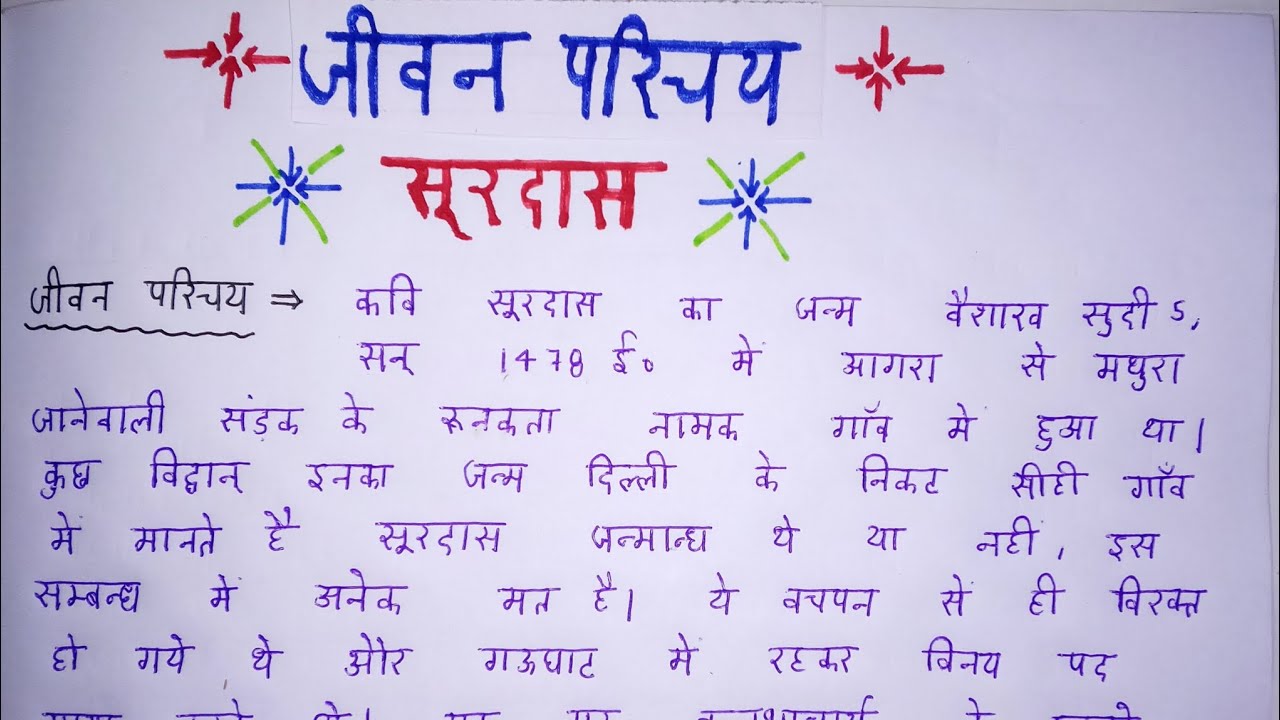 जीवन परिचय
सूरदास
जीवन परिचय ⇒ कवि सूरदास का जन्म वैशाख सुदी 5,
सन् 1478 ई० में आगरा से मथुरा
जानेवाली संड़क के रूनकता नामक गाँव में हुआ था।
कुछ विद्वान् इनका जन्म दिल्ली के निकट सीही गाँव
में मानते है सूरदास जन्मान्ध थे या नहीं, इस
सम्बन्ध में अनेक मत है। ये वचपन से ही विरक्त
हो गये थे और गऊघाट में रहकर विनय पद